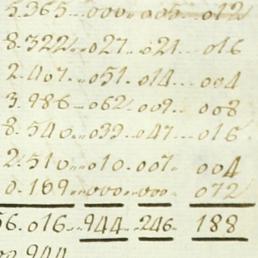 5.365...000...005...012
8.322...027...021...016
2.407...051...014...004
3.986...062...009...008
8.540...033...047...016
2.510...010...007...004
0.169...000...000...072
56.016...944...246...188
00.944